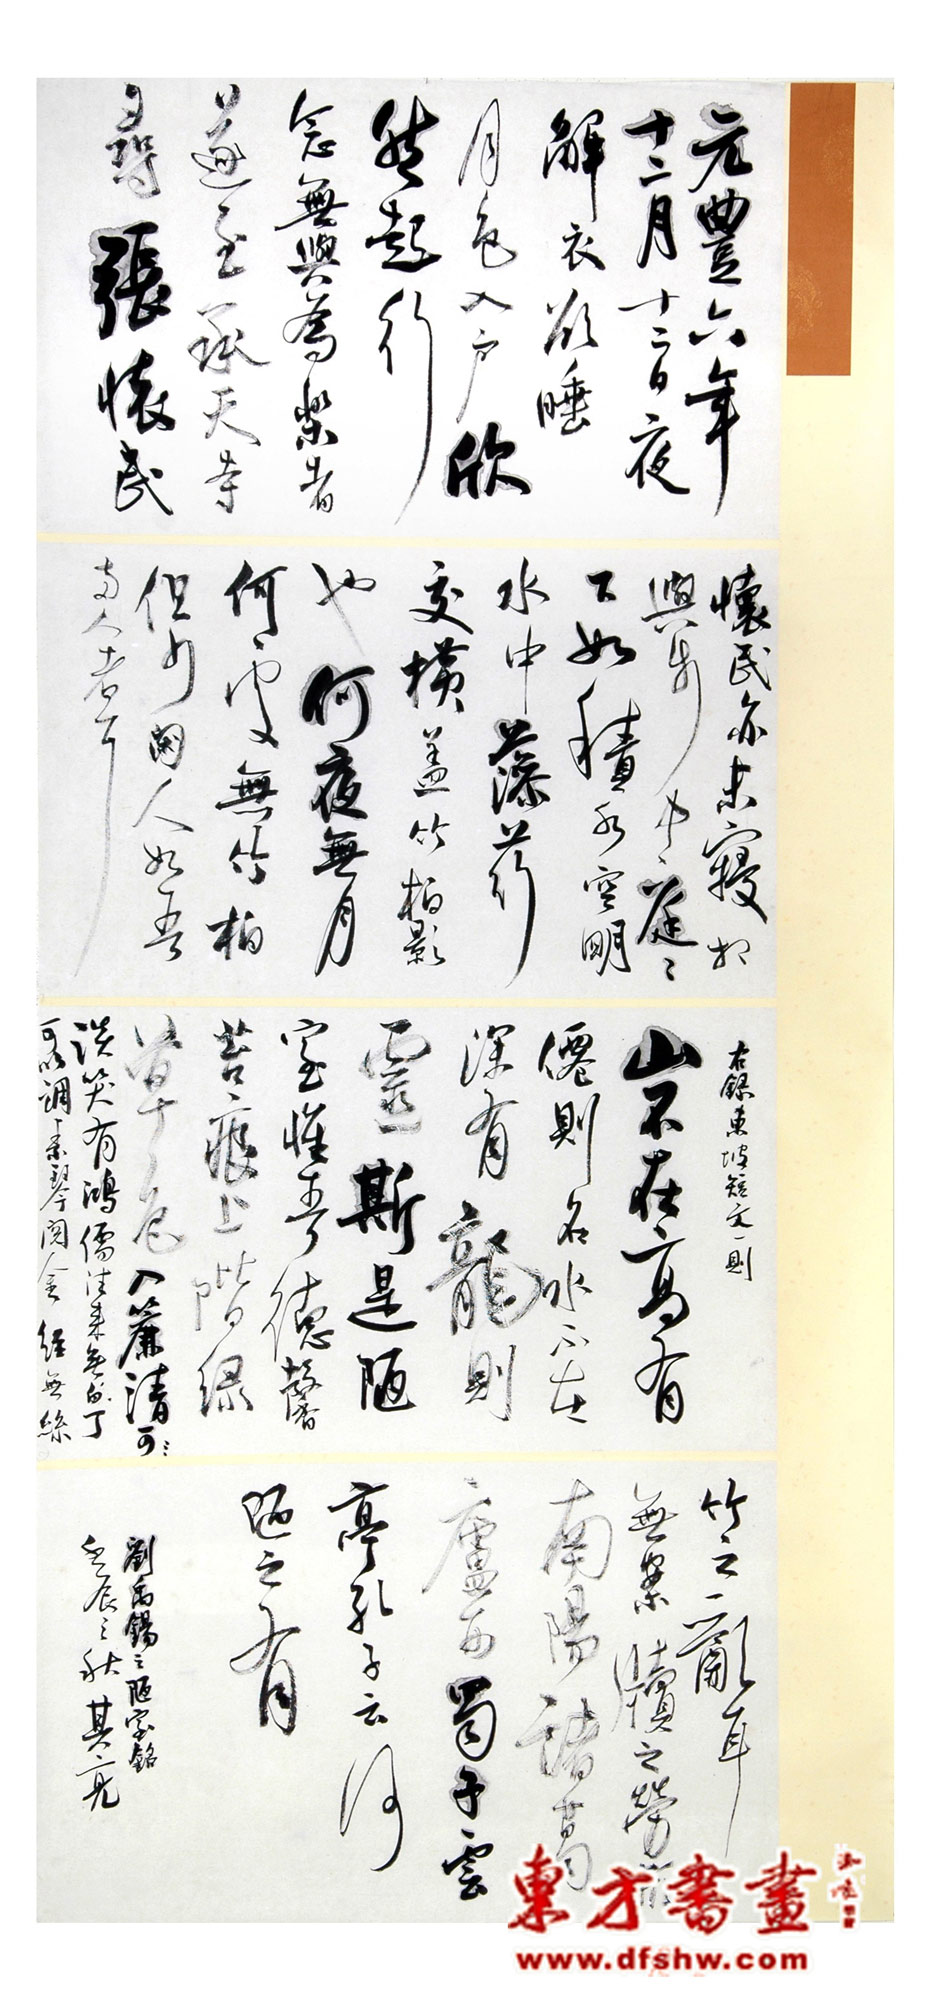 元豐六年
十二月十二日夜
解衣欲睡
月色入户欣
然起行
念無與為樂者
遂至承天寺
尋張懷民
懷民亦未寢相
與步中庭庭
下如積水空明
水中藻荇
交橫蓋竹柏影
也何夜無月
何處無竹柏
但少閑人如吾
兩人者耳
右錄東坡短文一則
山不在高有
僊則名水不在
深有龍則
靈斯是陋
室惟吾德馨
苔痕上階緑
草色入簾青可
談笑有鴻儒往來無白丁
可以調素琴閱金經無絲
竹之亂耳
無案牘之勞形
南陽諸葛
廬西蜀子雲
亭孔子云何
陋之有
劉禹錫之陋室銘
壬辰之秋其亮
東方書畫
www.dfshw.com